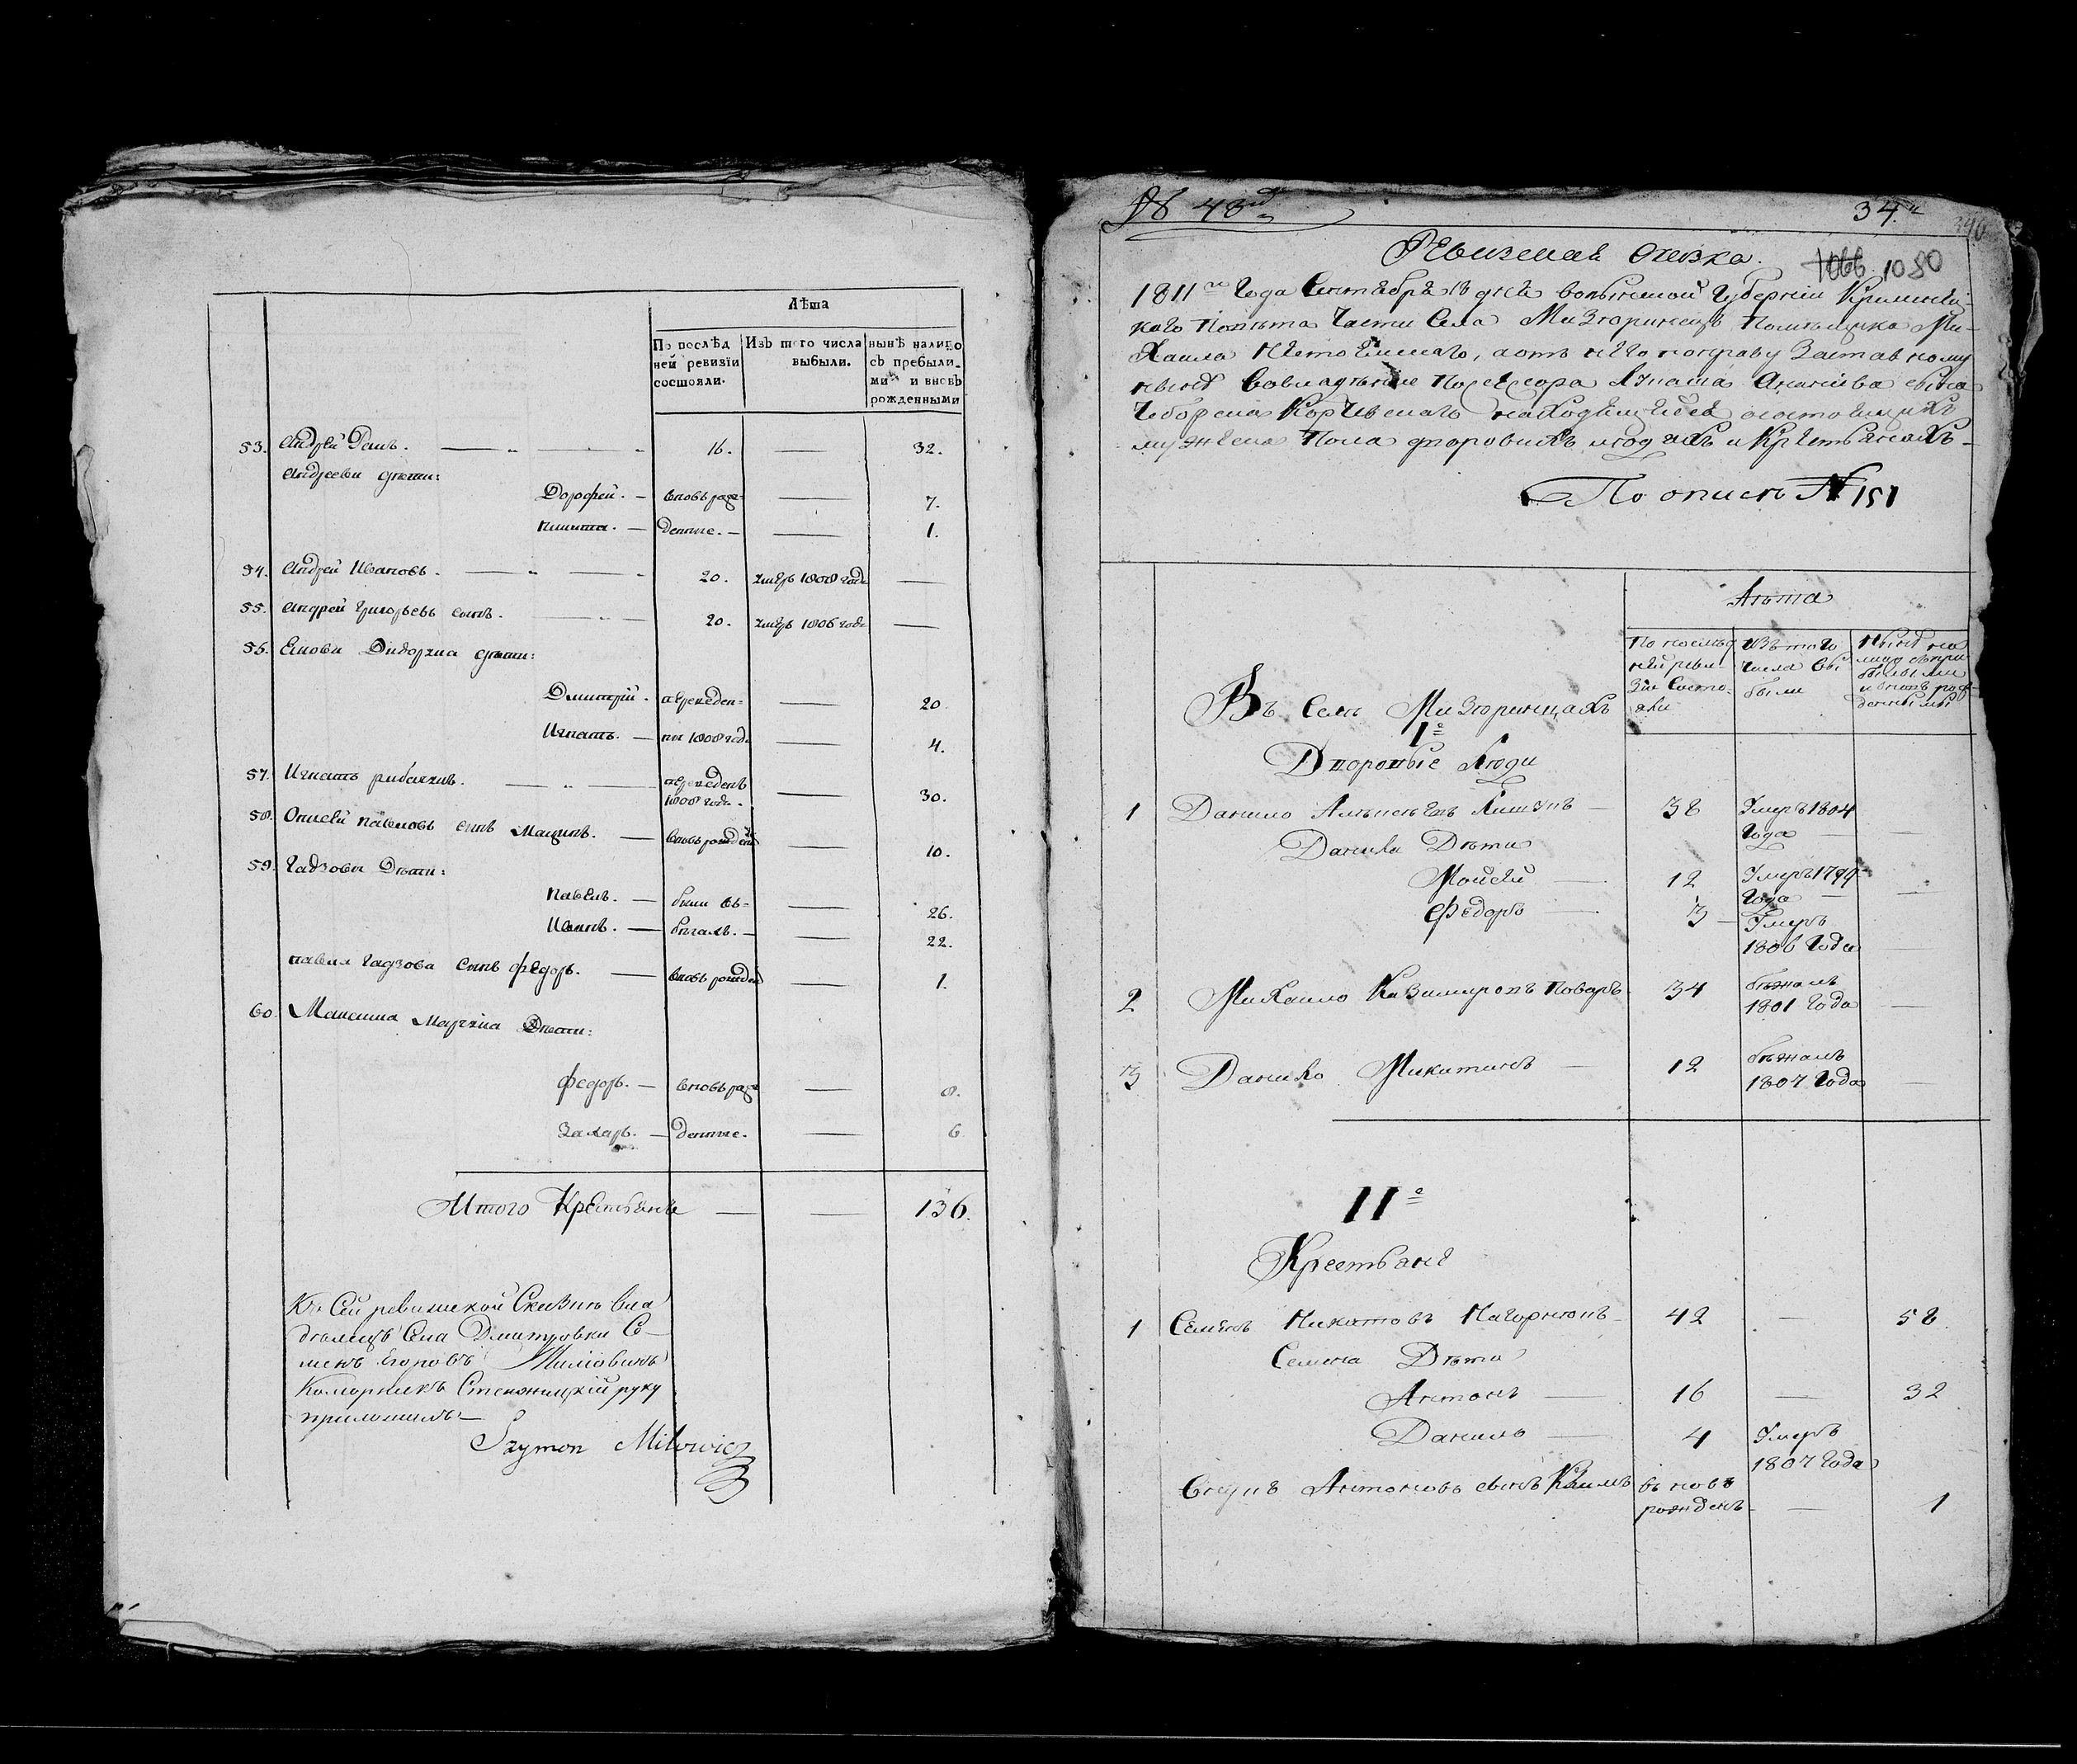 Лѣта
По послѣд
ней ревизіи
состояли.
Изъ того числа
выбыли.
нынѣ налицо
съ прибыли-
ми и вновь
рожденными
53. Андрей Данъ. — 16. — 32.
Андреевы дѣти:
Дорофей. — вновь рож- — 7.
Никита. — денные. — — 1.
54. Андрей Ивановъ. — 20. умеръ 1808 года —
55. Андрей Григорьевъ сынъ. 20. умеръ 1806 года —
56. дѣти:
Дмитрій. переведен= — 20.
Игнатъ. — ны 1808 года — 4.
57. Игнатъ — переведенъ
1808 года. — 30.
58. Павловъ сынъ — вновь рожденъ — 10.
59. Гадзовы Дѣти:
Павелъ. — были въ= — 26.
Иванъ. — бѣгахъ. — — 22.
Павла Гадзова сынъ Федоръ. — вновь рожден — 1.
60. Максима Дѣти:
Федоръ. — вновь рож — 8.
Захаръ. — денные. — 6
Итого Крестьянъ — — 136.
Къ сей ревижской Сказкѣ вла
дѣлецъ Села Дмитровки Се-
менъ Миловичъ
Коморникъ руку
приложилъ—
Szymon Milowicz
№ 43й
34.
396
Ревизская Сказка.
1066 1080
1811го Года Сентября дня волынской Губерніи Кременец-
каго Повѣта Части Села Мизюринецъ Помѣщика Ми-
хаила а отъ него по праву Заставному
нынѣ во владѣніе Поссессора Игната сына
находящейся о состоящихъ
мужеска Пола дворовыхъ людяхъ и Крестьянахъ-
По описи № 151
Лѣта
По послѣд
ней реви
зіи состо-
яли
Изъ того
числа вы
были
Нынѣ на
лицо съ при
былыми
и вновь рож
денными
Въ Селѣ Мизюринцахъ
1е
Дворовые Люди
1 Данило — 38 Умеръ 1804
Года — —
Данила Дѣти
Мойсей — 12 Умеръ 1799
Года — —
Федоръ — 3 — Умеръ
1806 Года —
2 Михайло Казимировъ Поваръ 34 бѣжалъ
1801 Года —
3 Данило Микитинъ — 12 бѣжалъ
1807 Года —
IIе
Крестьяне
1 Семенъ Никитовъ 42 — 58
Семена Дѣти
Антонъ — 16 — 32
Данило — 4 Умеръ
1807 Года
Внукъ Антоновъ сынъ въ новъ
рожденъ — 1